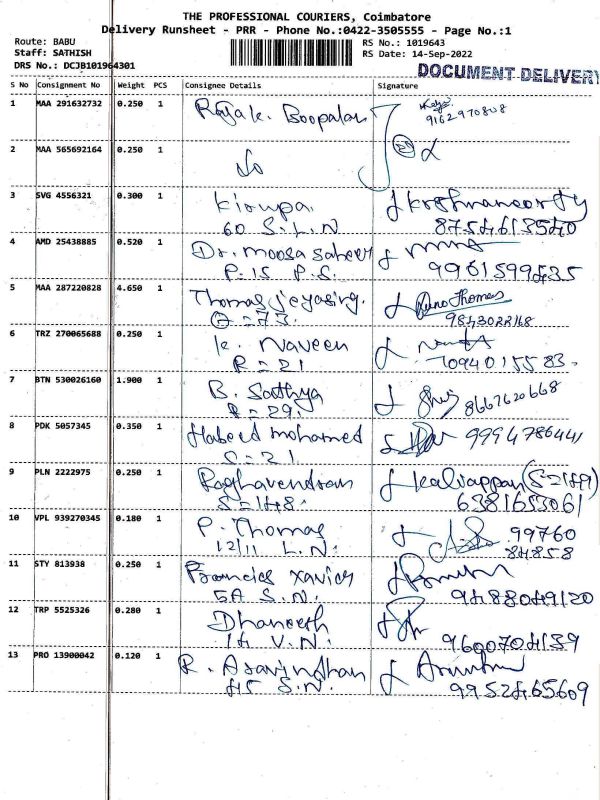 THE PROFESSIONAL COURIERS, Coimbatore
Delivery Runsheet - PRR - Phone No.:0422-3505555 - Page No.:1
Route: BABU
Staff: SATHISH
DRS No.: DCJB101964301
RS No.: 1019643
RS Date: 14-Sep-2022
DOCUMENT DELIVERY
S No Consignment No Weight PCS Consignee Details Signature
1 MAA 291632732 0.250 1 Boopalan
9162970808
2 MAA 565692164 0.250 1
3 SVG 4556321 0.300 1 Kirupa Krishnamoorthy
60 S.L.N 8754613540
4 AMD 25438885 0.520 1 Dr. moosa saheer
P-15 P.S. 9961599435
5 MAA 287220828 4.650 1 Thomas jeyasing. Thomas
Q=73. 9843022168
6 TRZ 270065688 0.250 1 K. Naveen
R=21 7094015583.
7 BTN 530026160 1.900 1 B. Sathya
R=29. 8667620668
8 PDK 5057345 0.350 1 Habeed mohamed 9994786441
S-21
9 PLN 2222975 0.250 1 Raghavendran Kaliappan (S=149)
S=148. 6381653061
10 VPL 939270345 0.180 1 P. Thomas 99760
12/11 L.N. 84858
11 STY 813938 0.250 1 Francies xavier
5A S.N. 9488049120
12 TRP 5525326 0.280 1 Dhaneesh
14 V.N. 9600704139
13 PRO 13900042 0.120 1 R. Aravindhan
45 S.N. 9952465609